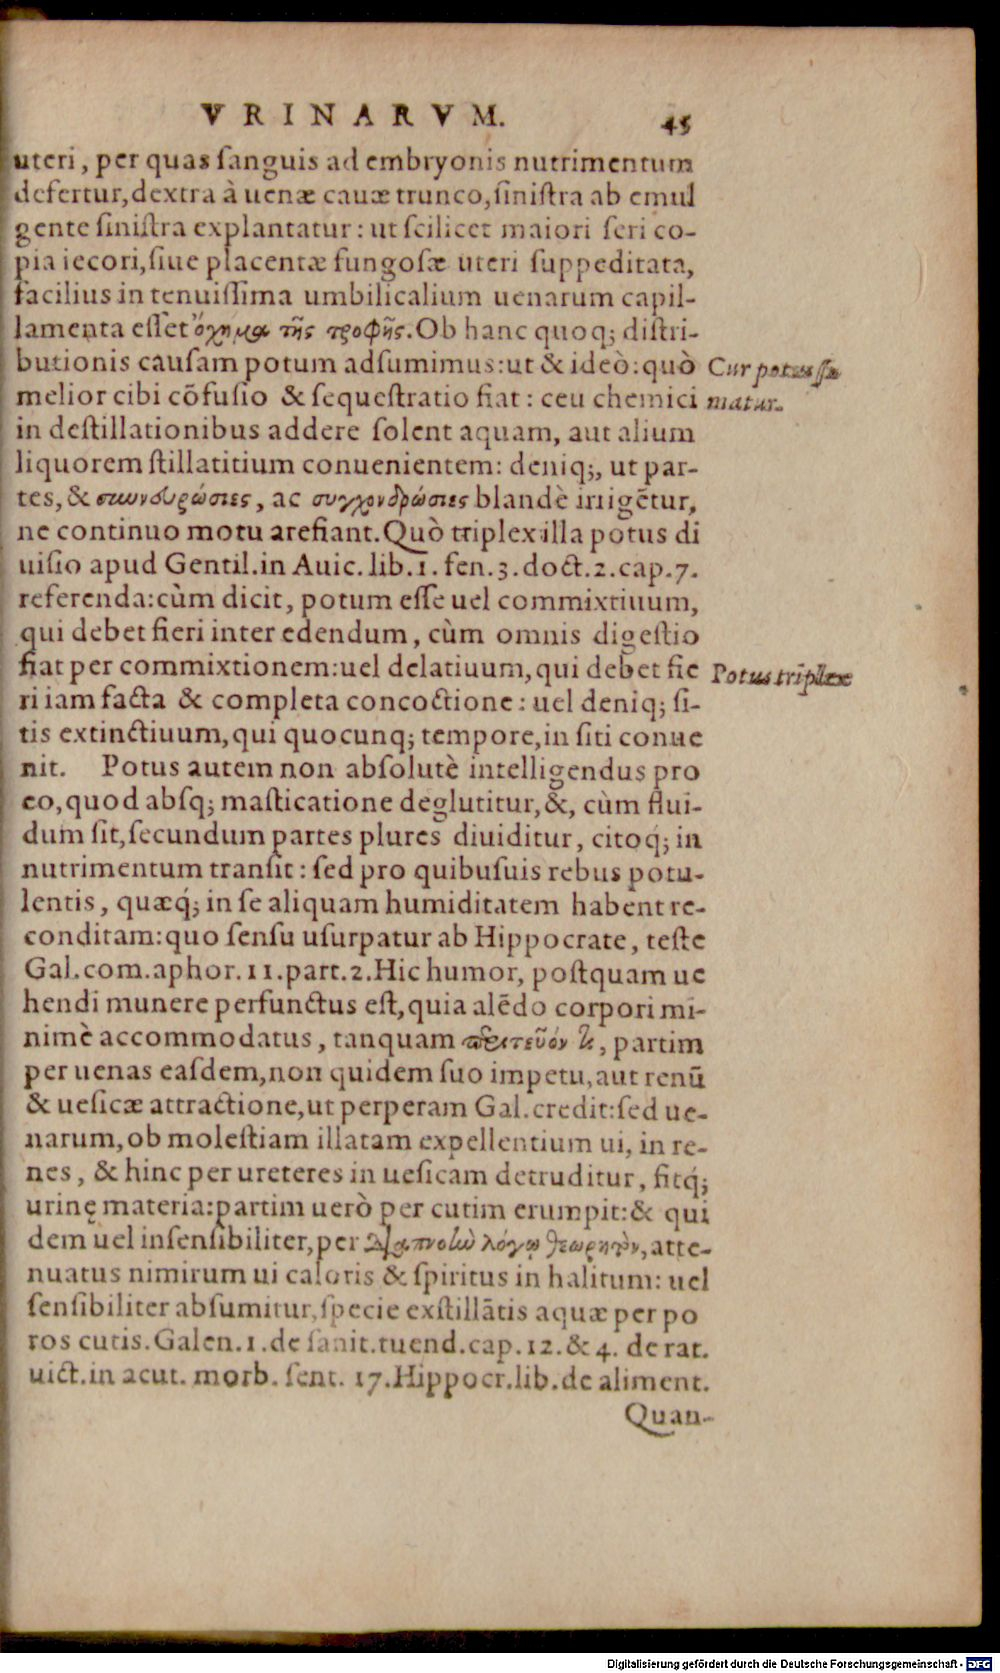 VRINARVM. 45
uteri, per quas ſanguis ad embryonis nutrimentum
defertur, dextra à uenæ cauæ trunco, ſiniſtra ab emul
gente ſiniſtra explantatur: ut ſcilicet maiori ſeri co-
pia iecori, ſiue placentæ fungoſæ uteri ſuppeditata,
facilius in tenuiſſima umbilicalium uenarum capil-
lamenta eſſet ὄχημα τῆς τροφῆς. Ob hanc quoq; diſtri-
butionis cauſam potum adſumimus: ut & ideò: quò
Cur potus ſu
melior cibi cõfuſio & ſequeſtratio fiat: ceu chemici
matur.
in deſtillationibus addere ſolent aquam, aut alium
liquorem ſtillatitium conuenientem: deniq;, ut par-
tes, & συνδυρώσιες, ac συγχονδρώσιες blandè irrigẽtur,
ne continuo motu arefiant. Quò triplex illa potus di
uiſio apud Gentil. in Auic. lib. 1. fen. 3. doct. 2. cap. 7.
referenda: cùm dicit, potum eſſe uel commixtiuum,
qui debet fieri inter edendum, cùm omnis digeſtio
fiat per commixtionem: uel delatiuum, qui debet fie
Potus triplex
ri iam facta & completa concoctione: uel deniq; ſi-
tis extinctiuum, qui quocunq; tempore, in ſiti conue
nit. Potus autem non abſolutè intelligendus pro
eo, quod abſq; maſticatione deglutitur, &, cùm flui-
dum ſit, ſecundum partes plures diuiditur, citoq́; in
nutrimentum tranſit: ſed pro quibuſuis rebus potu-
lentis, quæq́; in ſe aliquam humiditatem habent re-
conditam: quo ſenſu uſurpatur ab Hippocrate, teſte
Gal. com. aphor. 11. part. 2. Hic humor, poſtquam ue
hendi munere perfunctus eſt, quia alẽdo corpori mi-
nimè accommodatus, tanquam , partim
per uenas eaſdem, non quidem ſuo impetu, aut renũ
& ueſicæ attractione, ut perperam Gal. credit: ſed ue-
narum, ob moleſtiam illatam expellentium ui, in re-
nes, & hinc per ureteres in ueſicam detruditur, fitq́;
urinę materia: partim uerò per cutim erumpit: & qui
dem uel inſenſibiliter, per διαπνοὴν λόγῳ θεωρητὴν, atte-
nuatus nimirum ui caloris & ſpiritus in halitum: uel
ſenſibiliter abſumitur, ſpecie exſtillãtis aquæ per po
ros cutis. Galen. 1. de ſanit. tuend. cap. 12. & 4. de rat.
uict. in acut. morb. ſent. 17. Hippocr. lib. de aliment.
Quan-
Digitalisierung gefördert durch die Deutsche Forschungsgemeinschaft - DFG